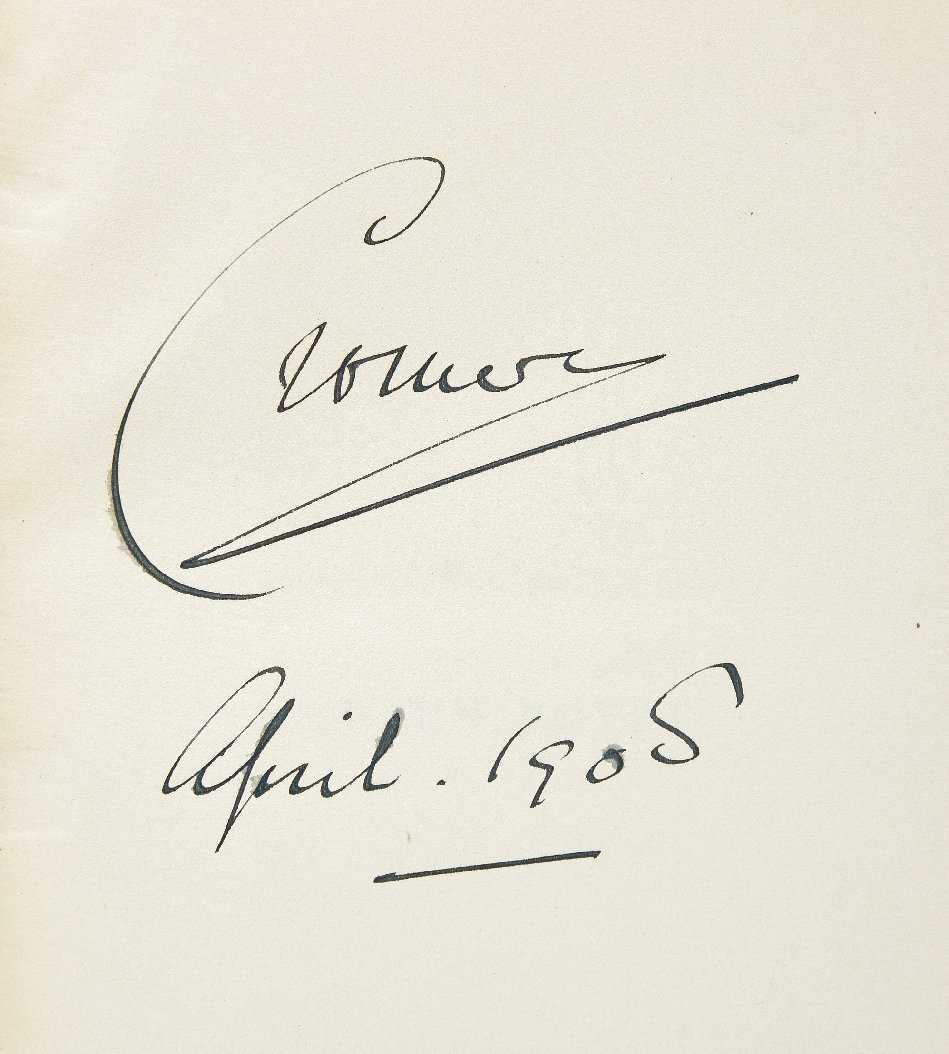 Cromer
April. 1908